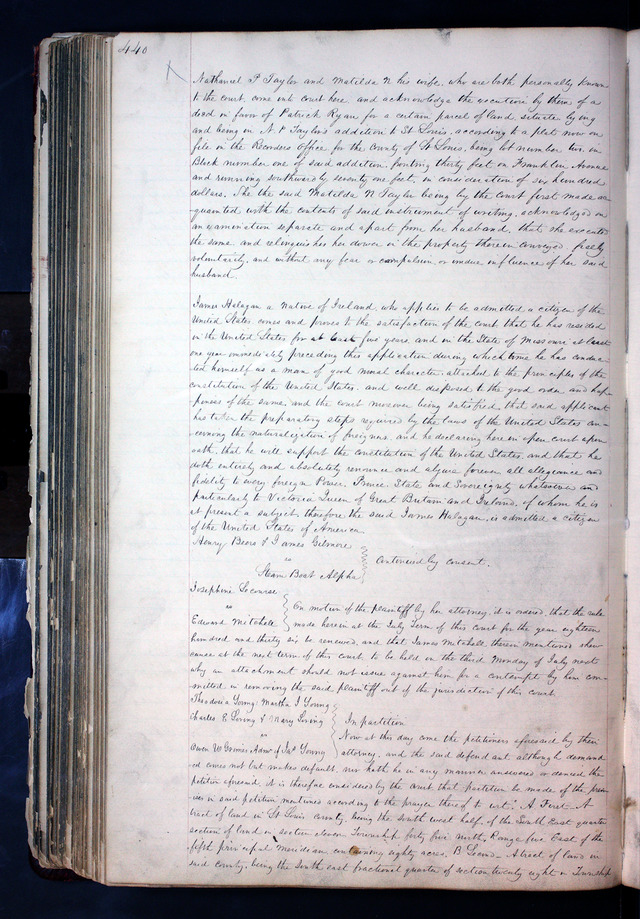 440
Nathaniel P Taylor and Matilda N his wife, who are both personally known
to the court, come into court here and acknowledge the execution by them of a
deed in favor of Patrick Ryan for a certain parcel of land, situate lying
and being in N P Taylors addition to St Louis, according to a plat now on
file in the Recorders office for the County of St Louis, being lot number two in
Block number one of said addition, fronting thirty feet on Franklin Avenue
and running southwardly seventy one feet, in consideration of six hundred
dollars. She the said Matilda N Taylor being by the court first made ac
quainted with the contents of said instrument of writing, acknowledged on
an examination separate and apart from her husband, that she executed
the same and relinquishes her dower in the property therein conveyed freely
voluntarily, and without any fear or compulsion or undue influence of her said
husband
James Halagan a native of Ireland who applies to be admitted a citizen of the
United States comes and proves to the satisfaction of the court that he has resided
in the United States for at least five years, and in the State of Missouri at least
one year immediately preceding this application during which time he has conduc
ted himself as a man of good moral character attached to the principles of the
constitution of the United States, and well disposed to the good order and hap
piness of the same, and the court moreover being satisfied, that said applicant
has taken the preparatory steps required by the laws of the United States con
cerning the naturalization of foreigners, and he declaring here in open court upon
oath, that he will support the constitution of the United States, and that he
doth entirely and absolutely renounce and abjure forever all allegiance and
fidelity to every foreign Power, Prince, State and Sovereignty whatsoever and
particularly to Victoria Queen of Great Britain and Ireland, of whom he is
at present a subject, therefore the said James Halagan, is admitted a citizen
of the United States of America
Henry Beers & James Gilmore
vs
Continued by consent.
Steam Boat Alpha
Josephine Lecourse
vs
On motion of the plaintiff by her attorney, it is ordered, that the rule
Edward Mitchell made herein at the July Term of this court for the year eighteen
hundred and thirty six be renewed, and that James Mitchell therein mentioned show
cause at the next term of this court to be held on the third Monday of July next
why an attachment should not issue against him for a contempt by him com
mitted in removing the said plaintiff out of the jurisdiction of this court
Theodosia Young, Martha I Young
Charles R Loring & Mary Loring In partition
vs
Now at this day come the petitioners aforesaid by their
Owen W Grimes Admr of Jas Young attorney, and the said defendant although demand
ed comes not but makes default, nor hath he in any manner answered or denied the
petition aforesaid, it is therefore considered by the court that partition be made of the prem
ises in said petition mentioned according to the prayer thereof to wit: A First. A
tract of land in St Louis County, being the South west half of the South East quarter
section of land in section eleven Township forty five north, Range five East of the
fifth principal meridian, containing eighty acres. B Second. A tract of land in
said county, being the South east fractional quarter of section twenty eight in Township